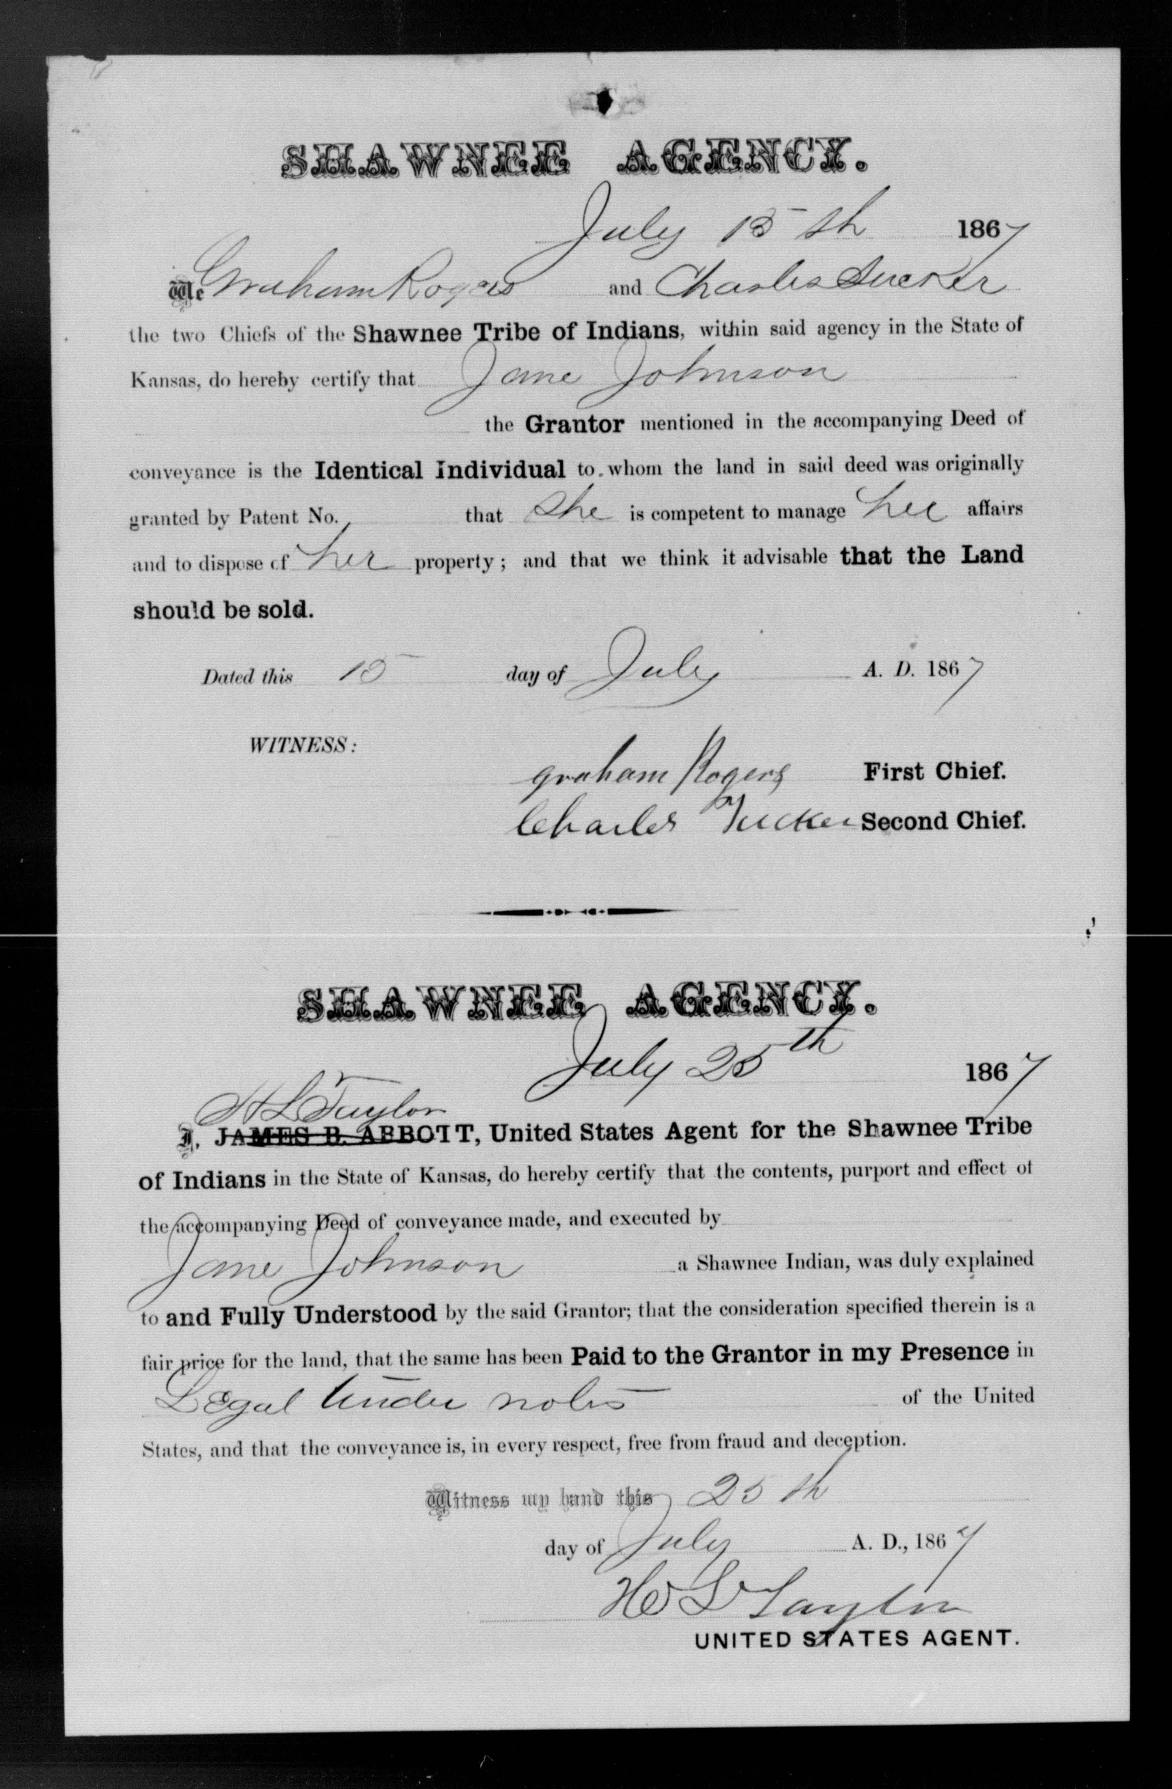 SHAWNEE AGENCY.
July 15th 1867
We Graham Rogers and Charles Tucker
the two Chiefs of the Shawnee Tribe of Indians, within said agency in the State of
Kansas, do hereby certify that Jane Johnson
the Grantor mentioned in the accompanying Deed of
conveyance is the Identical Individual to whom the land in said deed was originally
granted by Patent No. that she is competent to manage her affairs
and to dispose of her property; and that we think it advisable that the Land
should be sold.
Dated this 15 day of July A. D. 1867
WITNESS:
graham Rogers First Chief.
Charles Tucker Second Chief.
SHAWNEE AGENCY.
July 25th 1867
H L Taylor
I, JAMES B. ABBOTT, United States Agent for the Shawnee Tribe
of Indians in the State of Kansas, do hereby certify that the contents, purport and effect of
the accompanying Deed of conveyance made, and executed by
Jane Johnson a Shawnee Indian, was duly explained
to and Fully Understood by the said Grantor; that the consideration specified therein is a
fair price for the land, that the same has been Paid to the Grantor in my Presence in
Legal Tender notes of the United
States, and that the conveyance is, in every respect, free from fraud and deception.
Witness my hand this 25th
day of July A. D., 1867
H L Taylor
UNITED STATES AGENT.